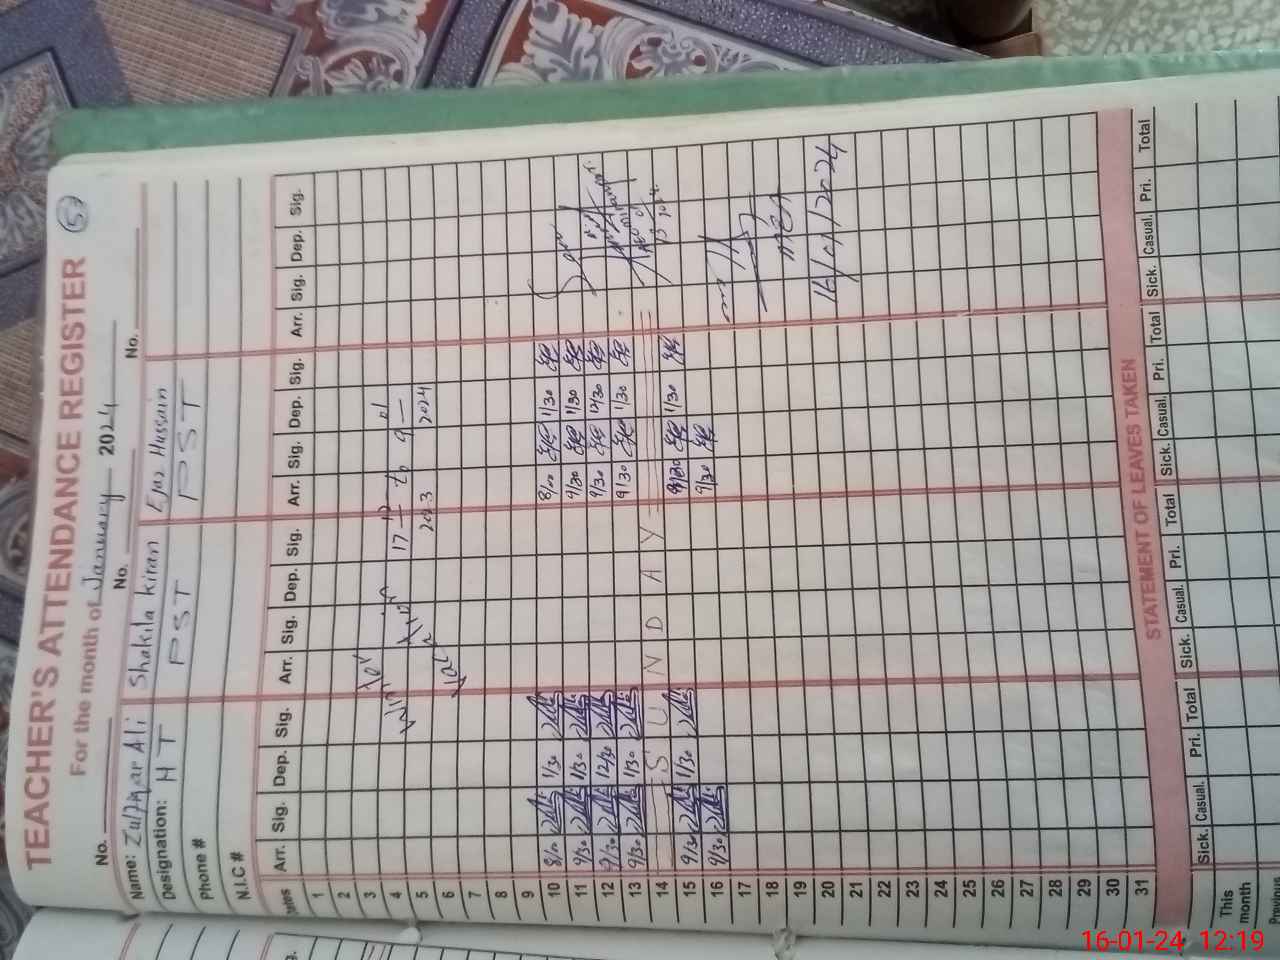 53
TEACHER'S ATTENDANCE REGISTER
For the month of January 2024
No. No. No.
Name: Zulfiqar Ali Shakila Kiran Ejaz Hussain
Designation: HT PST PST
Phone #
N.I.C #
Dates Arr. Sig. Dep. Sig. Arr. Sig. Dep. Sig. Arr. Sig. Dep. Sig. Arr. Sig. Dep. Sig.
1
2
3
4 17-12 to 9-01
5 2023 2024
6
7
8
9
10 8/00 1/30 8/00 1/30
11 9/30 1/30 9/30 1/30
12 9/30 12/30 9/30 12/30
13 9/30 1/30 9/30 1/30
14 SUNDAY
15 9/30 1/30 9/30 1/30
16 9/30 9/30
17
18 MEA
19
20 16/01/2024
21
22
23
24
25
26
27
28
29
30
31
STATEMENT OF LEAVES TAKEN
Sick. Casual. Pri. Total Sick. Casual. Pri. Total Sick. Casual. Pri. Total Sick. Casual. Pri. Total
This month
Previous
16-01-24 12:19